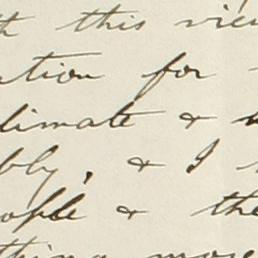 th this view
ution for
limate &
bly, & I
ople & the
thing more